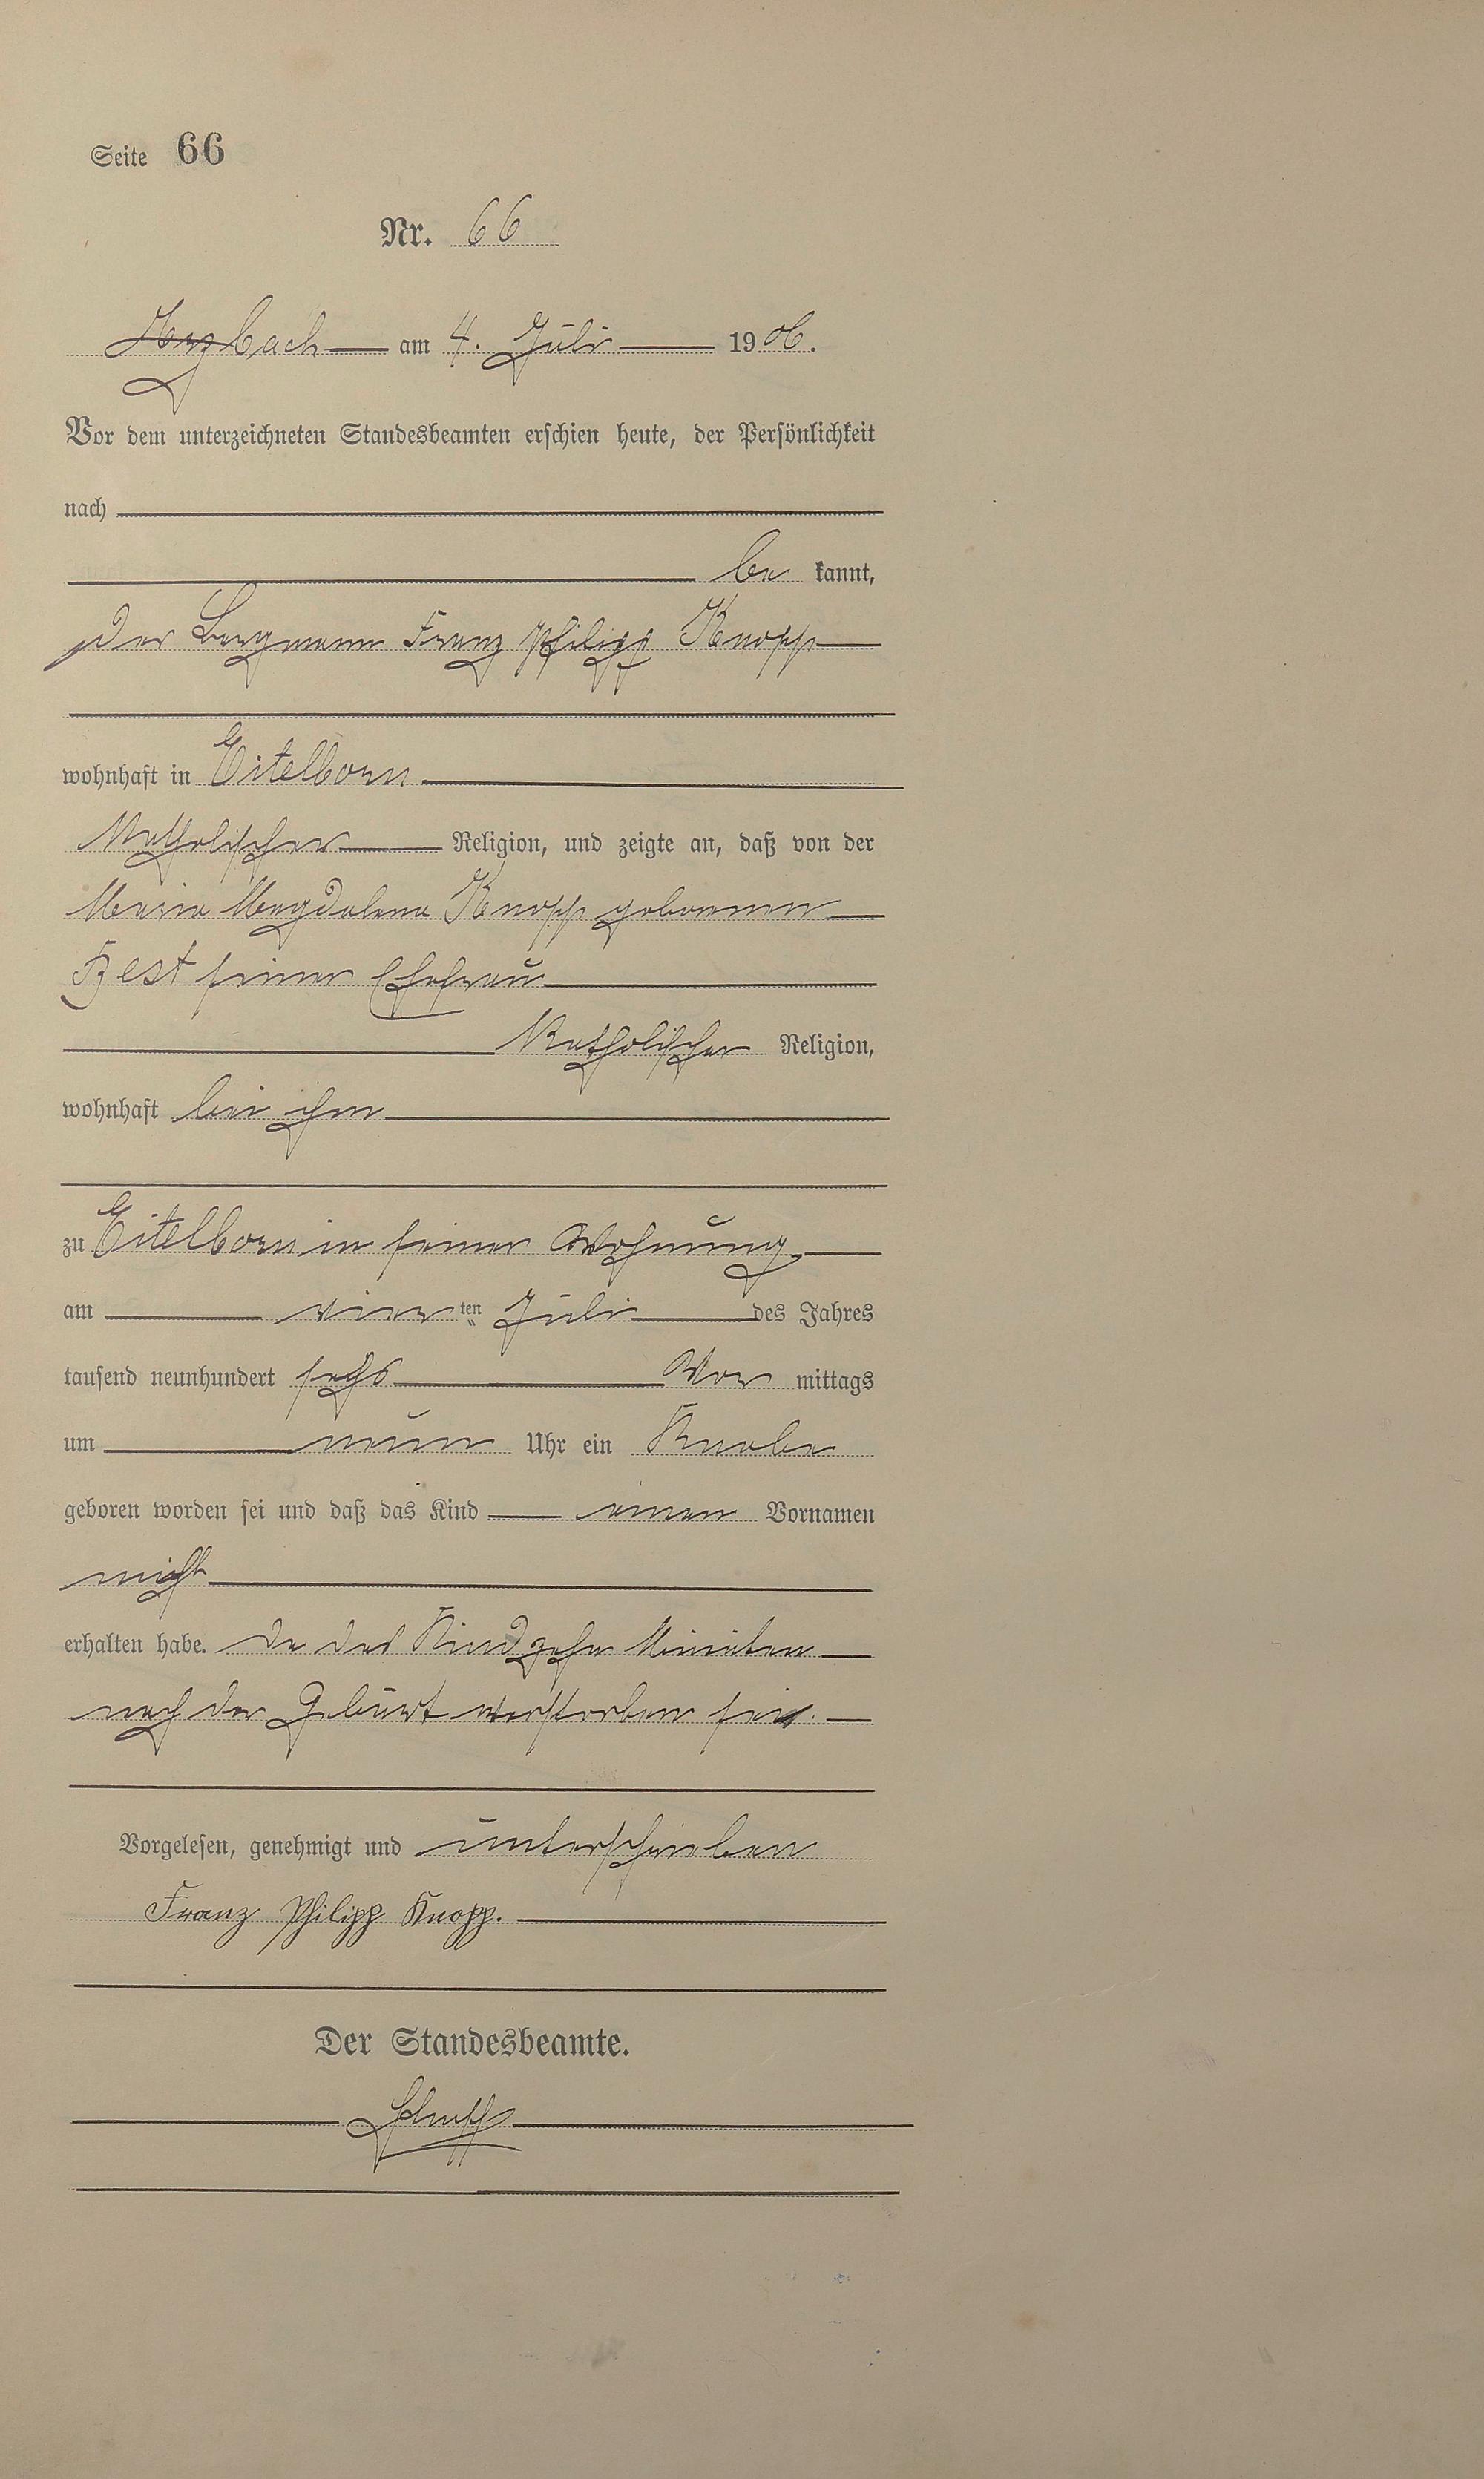 Seite 66
Nr. 66
am 4. Juli 1906.
Vor dem unterzeichneten Standesbeamten erschien heute, der Persönlichkeit
nach
be kannt,
der Bergmann Franz Philipp Knopp
wohnhaft in Eitelborn
Katholischer Religion, und zeigte an, daß von der
Maria Magdalena Knopp geborenen
Best seiner Ehefrau
Katholischer Religion,
wohnhaft bei ihm
zu Eitelborn in seiner Wohnung
am vier ten Juli des Jahres
tausend neunhundert sechs Vor mittags
um neun Uhr ein Knabe
geboren worden sei und daß das Kind einen Vornamen
nicht
erhalten habe. da das Kind zehn Minuten
nach der Geburt verstorben sei.
Vorgelesen, genehmigt und unterschrieben
Franz Philipp Knopp.
Der Standesbeamte.